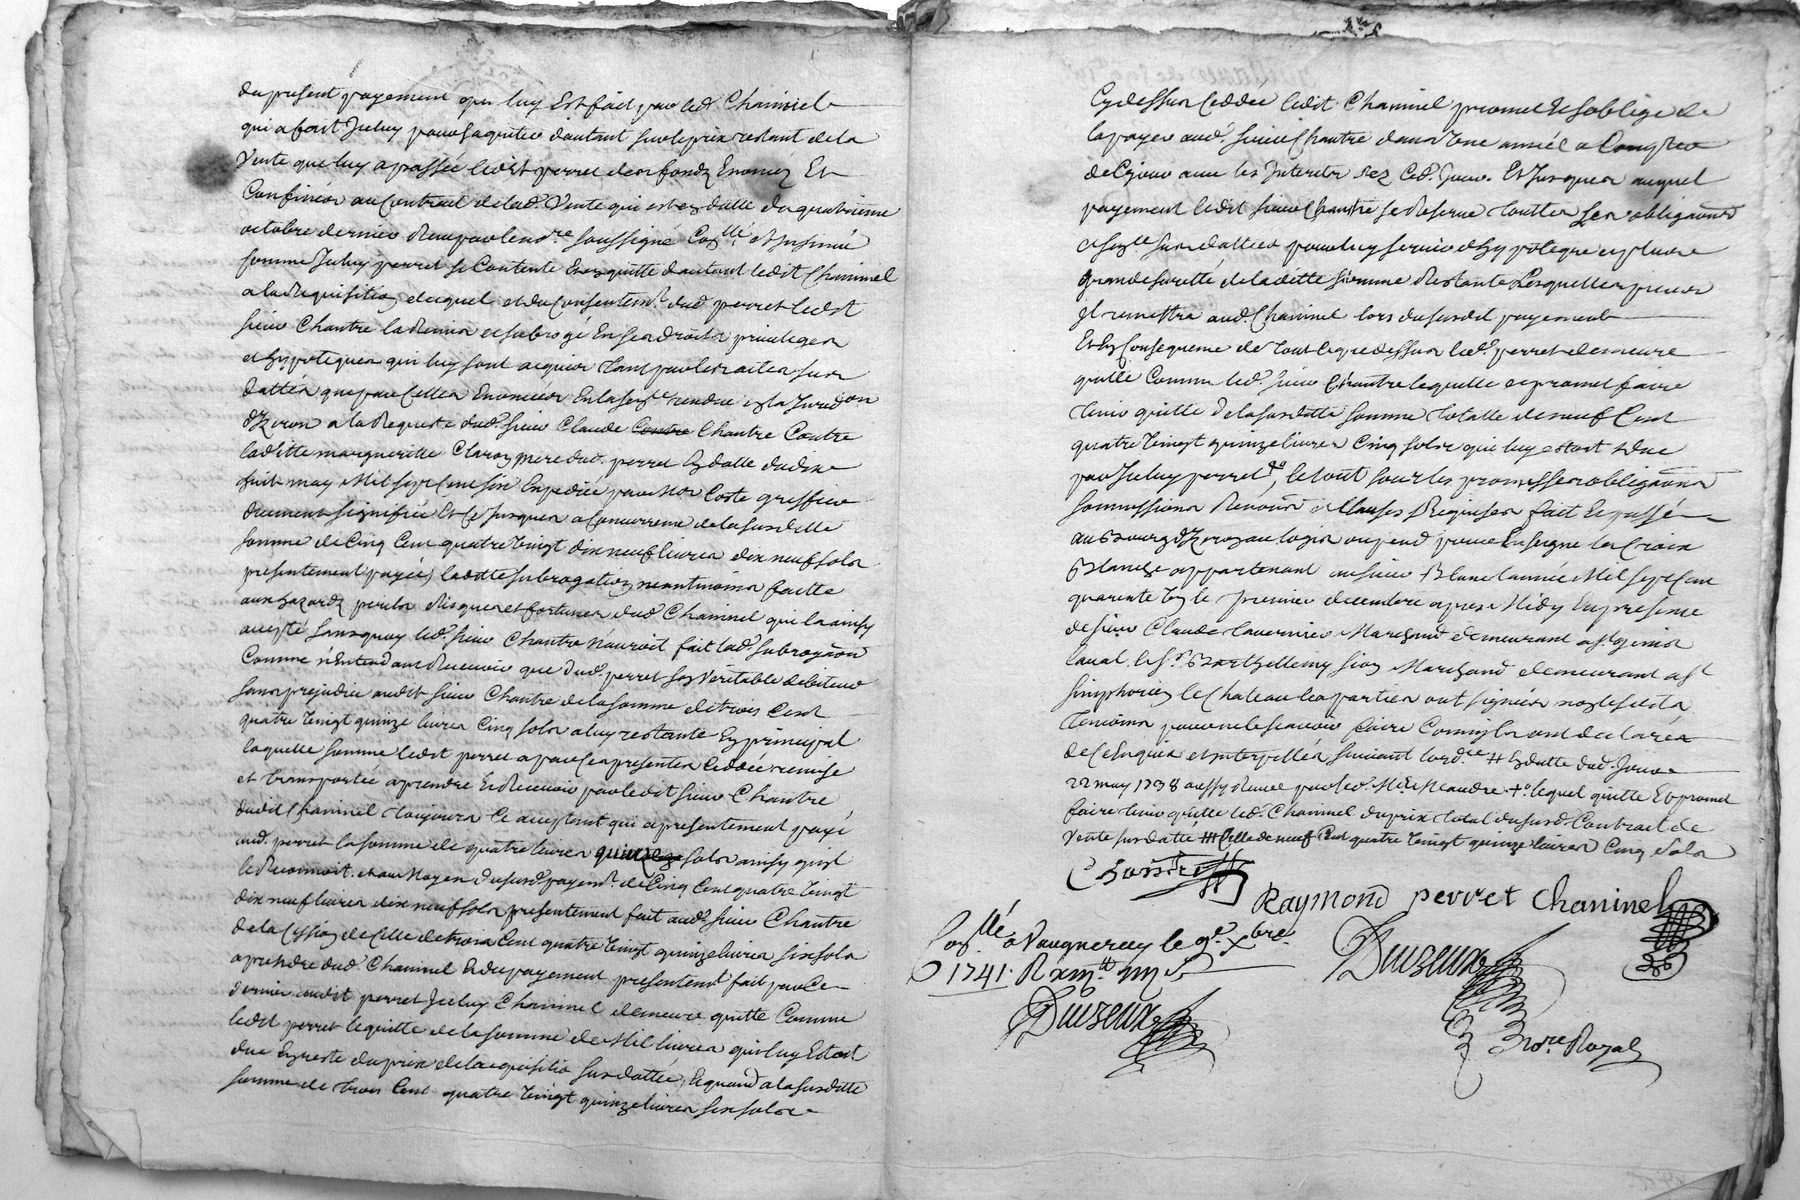 du present payement qui luy Est fait par led. Chaninel
qui a fait Iceluy pour saquiter dautant sur le prix restant de la
Vente que luy a passée ledit perret des fondz Enoncéz Et
Confinéz au Contract de lad. Vente qui est en datte du quatrieme
octobre dernier Reçu par le nore soussigné Conllé et Insinué
somme Iceluy perret se Contente En quitte dautant ledit Chaninel
a la Requisition duquel et du Consentemt dud perret ledit
sieur Chantre la Remis et subrogé En ses droits privileges
et hypoteques qui luy sont acquis tant par les actes sus
dattés que par Celles Enoncées En la sence rendue en la Juredon
dyzeron a la Requeste dud. sieur Claude Contre Chantre Contre
laditte margueritte Claron mere dud. perret En datte du dix
huit may Mil sept Cent six Expediée par Mor Coste greffier
duement signifiée Et Ce Jusques a Concurrence de la susditte
somme de Cinq Cent quatre Vingt dix neuf livres dix neuf sols
presentement payée, laditte subrogation neantmoins faitte
aux hazardz perils Risques et fortunes dud Chaninel qui la ainsy
accepté sans quoy led. sieur Chantre n'auroit fait lad. subrogaon
Comme n'Entendant Recevoir que dud. perret son Veritable debiteur
sans prejudice audit sieur Chantre de la somme de trois Cent
quatre Vingt quinze livres Cinq sols a luy restante En principal
laquelle somme ledit perret a par Ces presentes Ceddée remise
et transportée a prendre Et Recevoir par ledit sieur Chantre
dudit Chaninel toujours Ce acceptant qui a presentement payé
aud. perret la somme de quatre livres quinze sols ainsy quil
le Reconnoit. et au Moyen du susd payemt. de Cinq Cent quatre Vingt
dix neuf livres dix neuf sols presentement fait aud. sieur Chantre
de la Cession de Celle de trois Cent quatre Vingt quinze livres six sols
a prendre dud. Chaninel Et du payement presentemt fait par Ce
dernier audit perret Iceluy Chaninel demeure quitte Comme
ledit perret le quitte de la somme de Mil livres qui luy Estoit
due En reste du prix de la quisitio susdattée, Et quand a la susditte
somme de trois Cent quatre Vingt quinze livres six sols
Cy dessus Ceddée ledit Chaninel promet Et soblige de
la payer aud. sieur Chantre dans Une année a Compter
de Ce jour avec les Interets dez Ced. Jour. Et Jusques auquel
payement ledit sieur Chantre se Reserve touttes ses obligaons
et sence susdattées pour luy servir dhypoteque et plus
grande sureté de la ditte somme Restante Lesquelles pieces
il remettra aud. Chaninel lors du susdit payement
Et En Consequence de tout Ce que dessus led. perret demeure
quitte Comme led. sieur Chantre le quitte et promet faire
tenir quitte de la susditte somme totalle de neuf Cent
quatre Vingt quinze livres Cinq sols qui luy estoit due
par Iceluy perret, le tout sous les promesses obligaons
soumissions Renonons et Clauses Requises fait Et passé
au Bourg dyzeron au logis ou pend pour Enseigne la Croix
Blanche appartenant au sieur Blanc lannée Mil sept Cent
quarente Un le premier decembre apres Midy En presence
de sieur Claude tavernier Marchand demeurant a st genis
laval. le sr. Barthellemy sion Marchand demeurant a st
simphorien le Chateau les parties ont signées non lesdits
temoins pour ne le scavoir faire Comm ils ont declarés
de Ce Enquis et interpellés suivant lordce # En datte dud. Jour
22 may 1738 aussy Reçue par led. Me Neandre +o lequel quitte Et promet
faire tenir quitte led. Chaninel du prix total du susd. Contract de
Vente susdatté ## Celle de neuf Cent quatre Vingt quinze livres Cinq sols
Chantre
Raymond perret Chaninel
Conllé a Vaugneray le 9e Xbre
1741. R
Duizeux
Duizeux
nore Royal